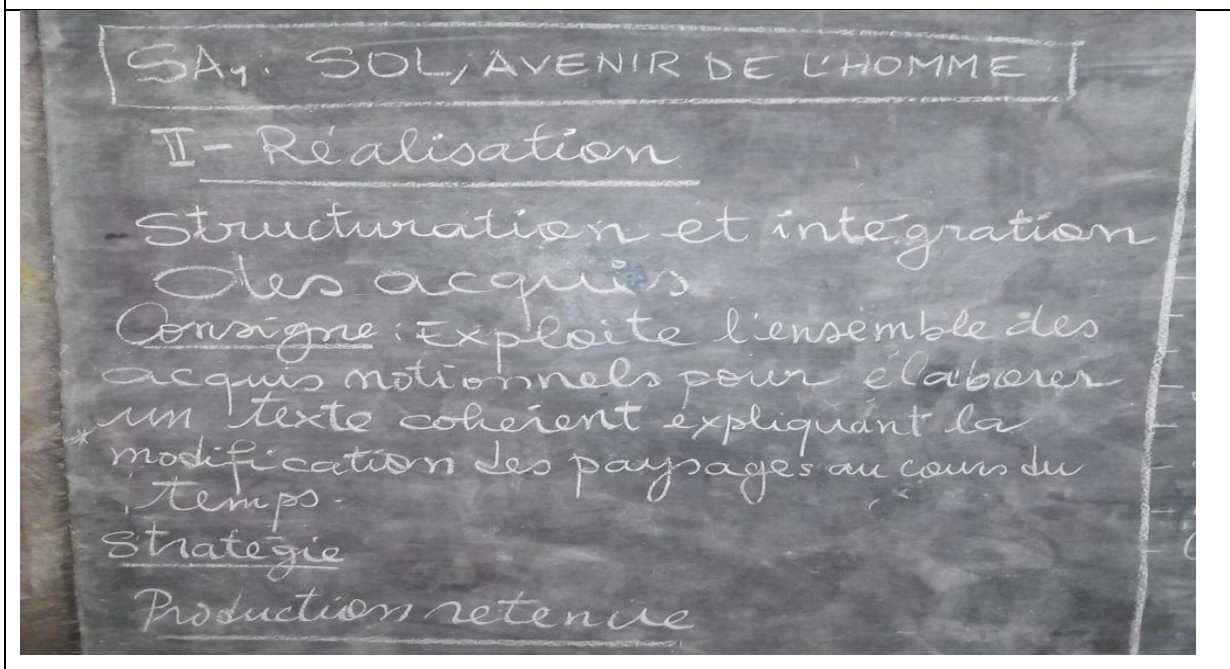 SA1: SOL, AVENIR DE L'HOMME
II- Réalisation
Structuration et intégration
des acquis
Consigne: Exploite l'ensemble des
acquis notionnels pour élaborer
un texte cohérent expliquant la
modification des paysages au cours du
temps.
Stratégie
Production retenue